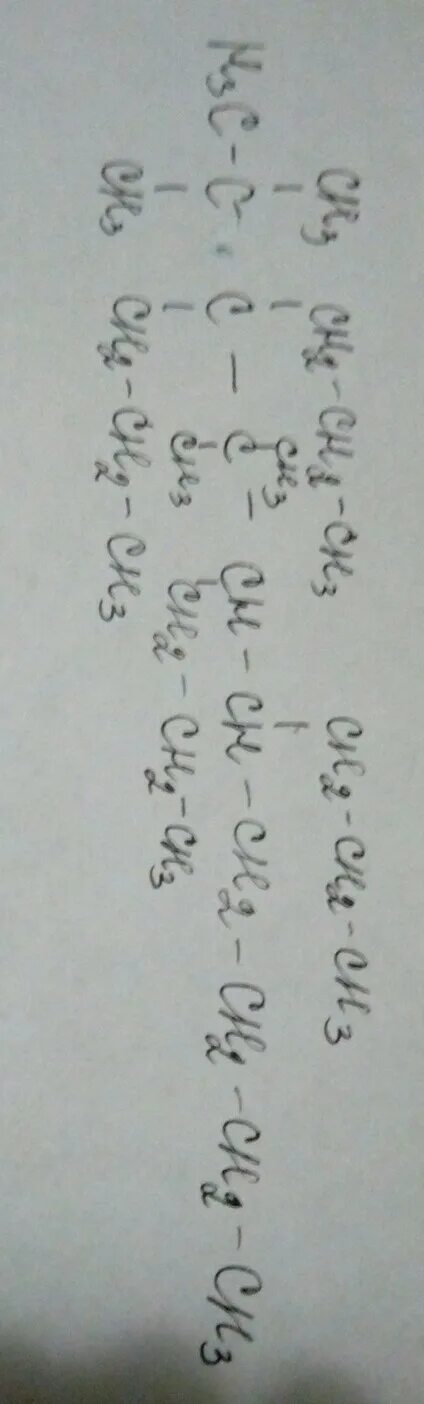 CH3 CH2-CH2-CH3 CH2-CH2-CH3
CH3
H3C-C · C - C - CH-CH-CH2-CH2-CH2-CH3
CH3 CH2-CH2-CH3
CH3 CH2-CH2-CH3